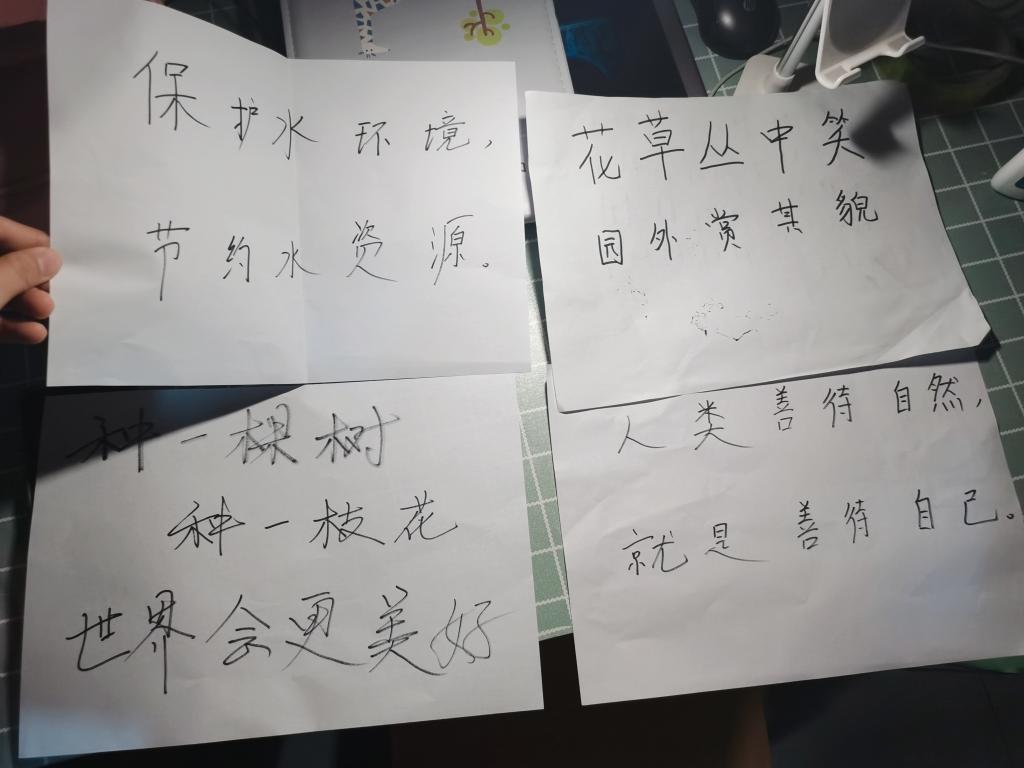 保护水环境,
节约水资源。
花草丛中笑
园外赏其貌
种一棵树
种一枝花
世界会更美好
人类善待自然,
就是善待自己。